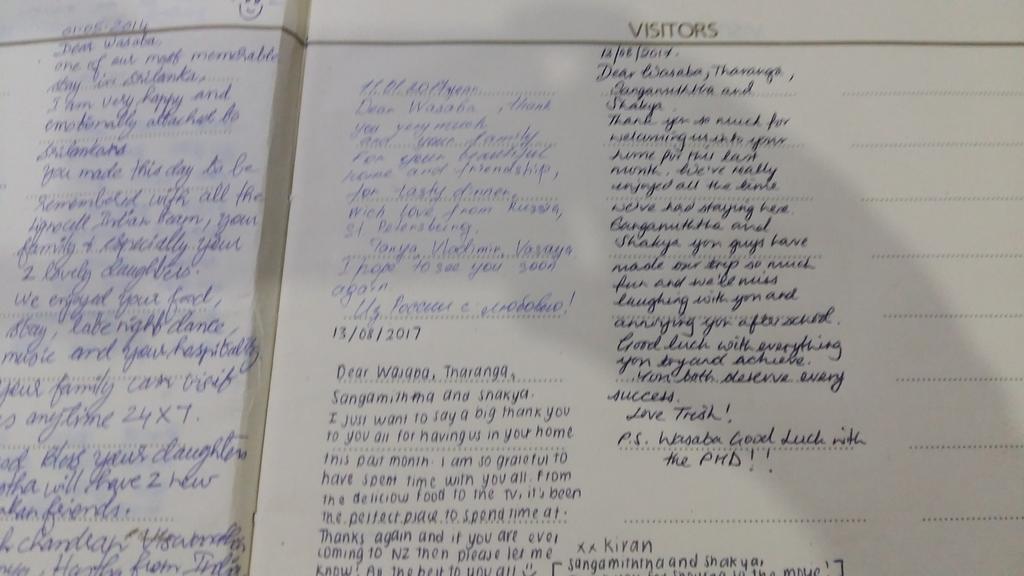 01-05-2014
Dear Wasaba,
one of our most memorable
stay in Srilanka.
I am very happy and
emotionally attached to
Srilankans
you made this day to be
remembered with all the
Indian team, your
family & especially your
2 lovely daughters.
We enjoyed your food,
stay, late night dance,
music and your hospitality
your family can visit
us anytime 24x7.
God bless your daughters
will have 2 new
friends.
from
VISITORS
11.01.2017 year
Dear Wasaba, thank
you very much
and your family
for your beautiful
home and friendship,
for tasty dinner,
With love from Russia,
St Petersburg.
Tanya, Vladimir,
I hope to see you soon
again
Из России с любовью!
13/08/2017
Dear Wasaba, Tharanga,
Sangamithma and Shakya.
I just want to say a big thank you
to you all for having us in your home
this past month. I am so grateful to
have spent time with you all. From
the delicious food to the TV, it's been
the perfect place to spend time at.
Thanks again and if you are ever
coming to NZ then please let me
know! All the best to you all
xx Kiran
Sangamithma and Shakya,
for in the movie!
12/08/2017.
Dear Wasaba, Tharanga,
and
Shakya
Thank you so much for
welcoming us into your
home for this last
month. We've really
enjoyed all the time
we've had staying here.
and
Shakya you guys have
made our trip so much
fun and we'll miss
laughing with you and
annoying you after school.
Good luck with everything
you try and achieve.
You both deserve every
success.
Love Trish!
P.S. Wasaba Good Luck with
the PHD!!